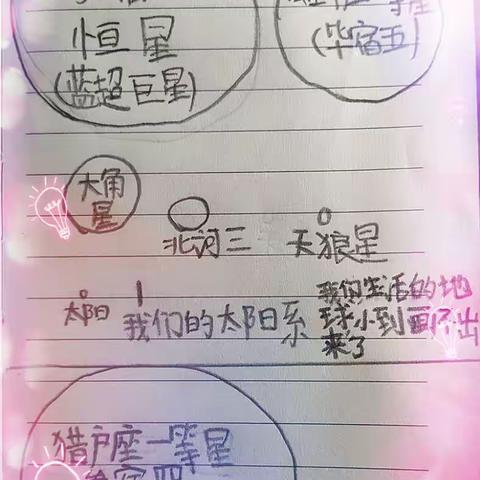 恒星
(蓝超巨星)
等星
(毕宿五)
大角
星
北河三
天狼星
太阳
我们的太阳系
我们生活的地
球小到画不出
来了
猎户座一等星